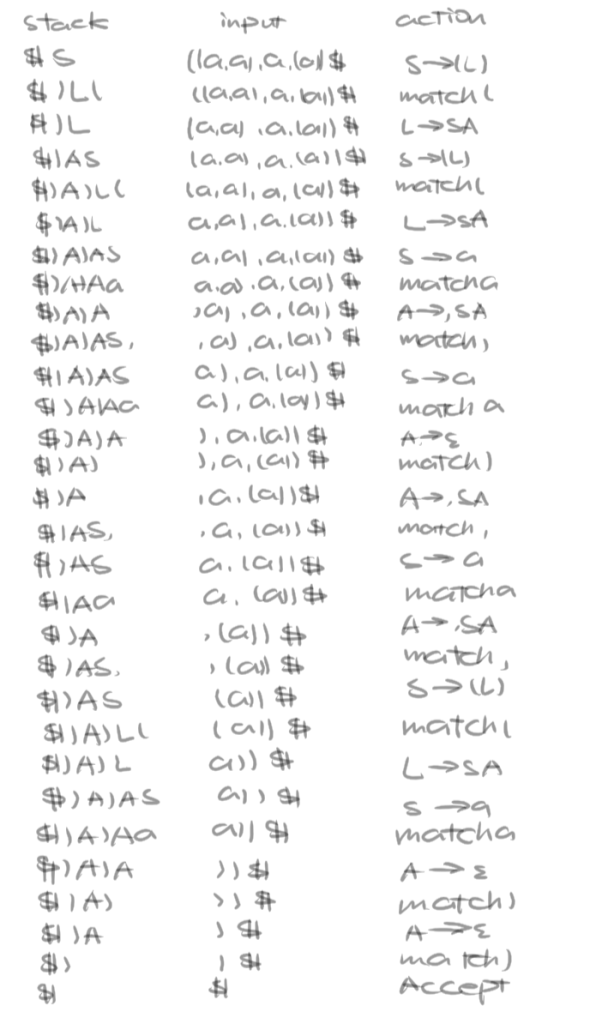 stack input action
$ S ((a,a),a,(a))$ S→(L)
$ )L( ((a,a),a,(a))$ match(
$ )L (a,a),a,(a))$ L→SA
$)AS (a,a),a,(a))$ S→(L)
$)A)L( (a,a),a,(a))$ match(
$)A)L a,a),a,(a))$ L→SA
$)A)AS a,a),a,(a))$ S→a
$)A)Aa a,a),a,(a))$ matcha
$)A)A ,a),a,(a))$ A→,SA
$)A)AS, ,a),a,(a))$ match,
$)A)AS a),a,(a))$ S→a
$)A)Aa a),a,(a))$ match a
$)A)A ),a,(a))$ A→ε
$)A) ),a,(a))$ match)
$)A ,a,(a))$ A→,SA
$)AS, ,a,(a))$ match,
$)AS a,(a))$ S→a
$)Aa a,(a))$ matcha
$)A ,(a))$ A→,SA
$)AS, ,(a))$ match,
$)AS (a))$ S→(L)
$)A)L( (a))$ match(
$)A)L a))$ L→SA
$)A)AS a))$ S→a
$)A)Aa a))$ matcha
$)A)A ))$ A→ε
$)A) ))$ match)
$)A )$ A→ε
$) )$ match)
$ $ Accept